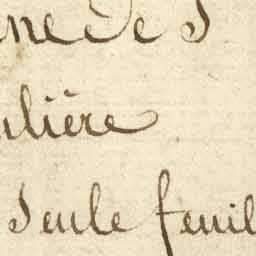 ne de S
ulière
Seule feuil